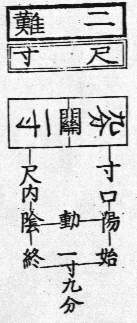 二難
尺寸
九分
關
一寸
寸口陽始
動
一寸九分
尺內陰終